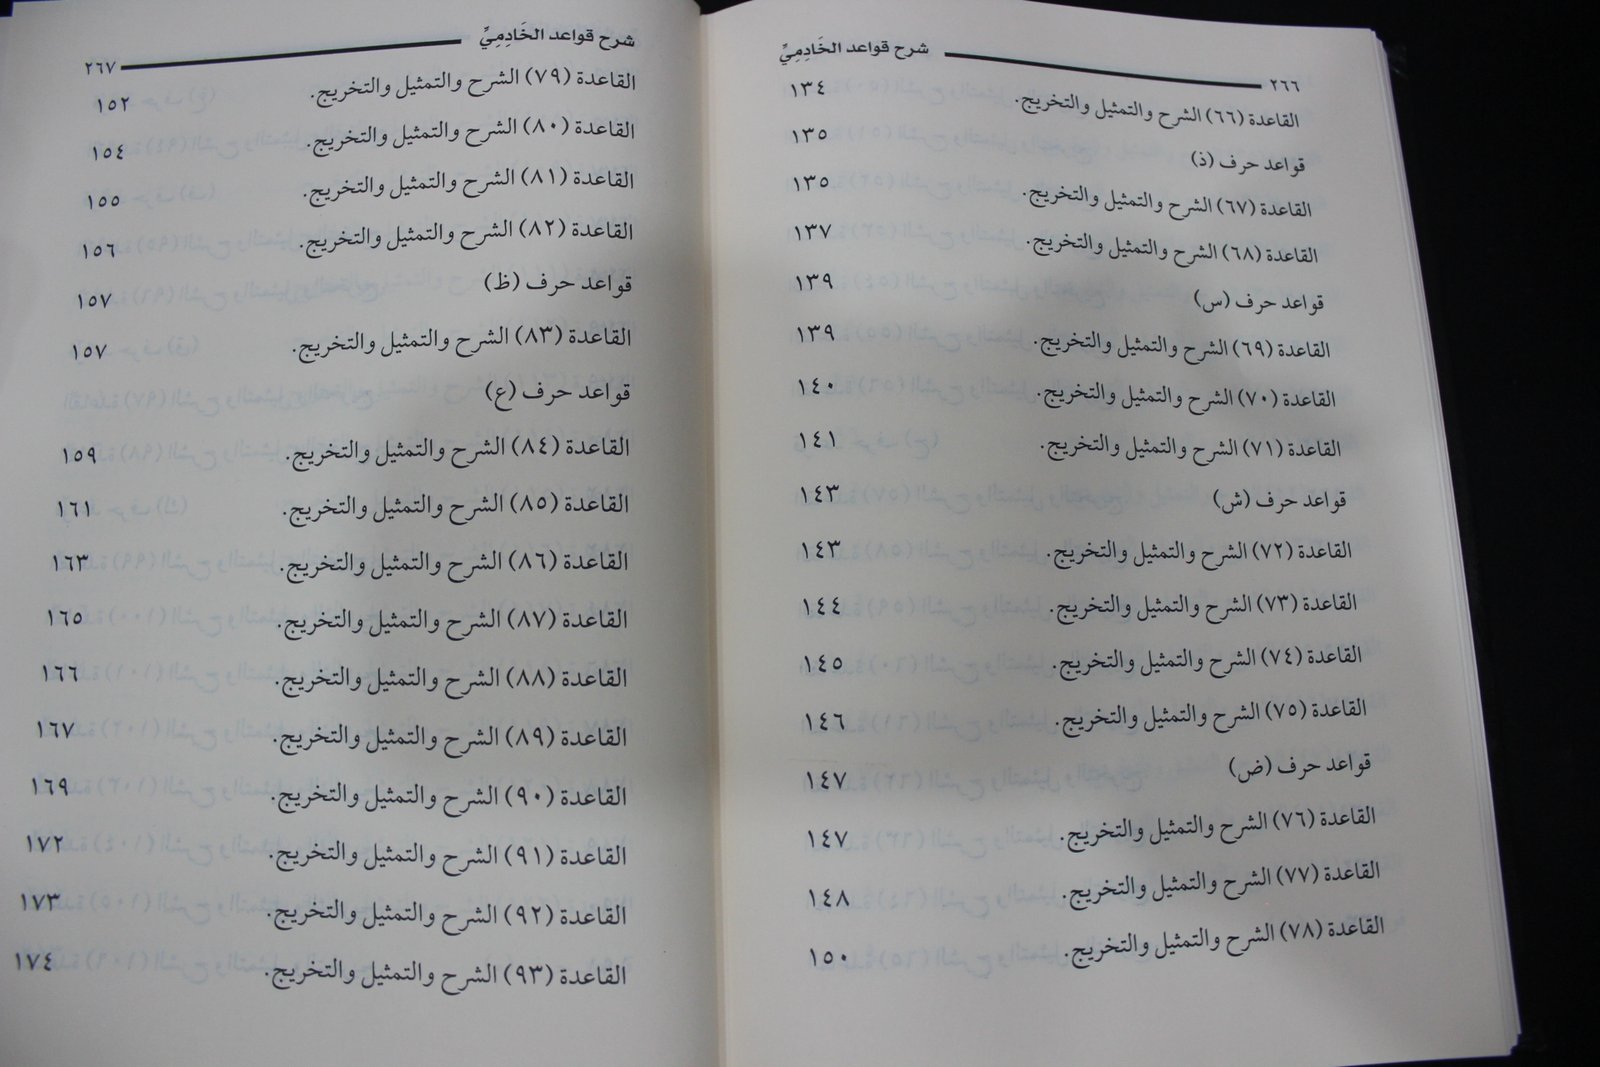 ٢٦٦ شرح قواعد الخَادِمِيِّ
القاعدة (٦٦) الشرح والتمثيل والتخريج. ١٣٤
قواعد حرف (ذ) ١٣٥
القاعدة (٦٧) الشرح والتمثيل والتخريج. ١٣٥
القاعدة (٦٨) الشرح والتمثيل والتخريج. ١٣٧
قواعد حرف (س) ١٣٩
القاعدة (٦٩) الشرح والتمثيل والتخريج. ١٣٩
القاعدة (٧٠) الشرح والتمثيل والتخريج. ١٤٠
القاعدة (٧١) الشرح والتمثيل والتخريج. ١٤١
قواعد حرف (ش) ١٤٣
القاعدة (٧٢) الشرح والتمثيل والتخريج. ١٤٣
القاعدة (٧٣) الشرح والتمثيل والتخريج. ١٤٤
القاعدة (٧٤) الشرح والتمثيل والتخريج. ١٤٥
القاعدة (٧٥) الشرح والتمثيل والتخريج. ١٤٦
قواعد حرف (ض) ١٤٧
القاعدة (٧٦) الشرح والتمثيل والتخريج. ١٤٧
القاعدة (٧٧) الشرح والتمثيل والتخريج. ١٤٨
القاعدة (٧٨) الشرح والتمثيل والتخريج. ١٥٠
شرح قواعد الخَادِمِيِّ ٢٦٧
القاعدة (٧٩) الشرح والتمثيل والتخريج. ١٥٢
القاعدة (٨٠) الشرح والتمثيل والتخريج. ١٥٤
القاعدة (٨١) الشرح والتمثيل والتخريج. ١٥٥
القاعدة (٨٢) الشرح والتمثيل والتخريج. ١٥٦
قواعد حرف (ظ) ١٥٧
القاعدة (٨٣) الشرح والتمثيل والتخريج. ١٥٧
قواعد حرف (ع)
القاعدة (٨٤) الشرح والتمثيل والتخريج. ١٥٩
القاعدة (٨٥) الشرح والتمثيل والتخريج. ١٦١
القاعدة (٨٦) الشرح والتمثيل والتخريج. ١٦٣
القاعدة (٨٧) الشرح والتمثيل والتخريج. ١٦٥
القاعدة (٨٨) الشرح والتمثيل والتخريج. ١٦٦
القاعدة (٨٩) الشرح والتمثيل والتخريج. ١٦٧
القاعدة (٩٠) الشرح والتمثيل والتخريج. ١٦٩
القاعدة (٩١) الشرح والتمثيل والتخريج. ١٧٢
القاعدة (٩٢) الشرح والتمثيل والتخريج. ١٧٣
القاعدة (٩٣) الشرح والتمثيل والتخريج. ١٧٤